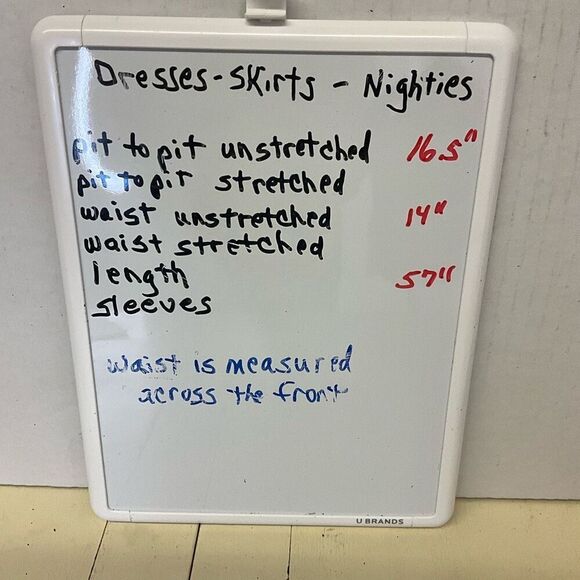 Dresses - Skirts - Nighties
pit to pit unstretched 16.5"
pit to pit stretched
waist unstretched 14"
waist stretched
length 57"
sleeves
waist is measured
across the front
U BRANDS